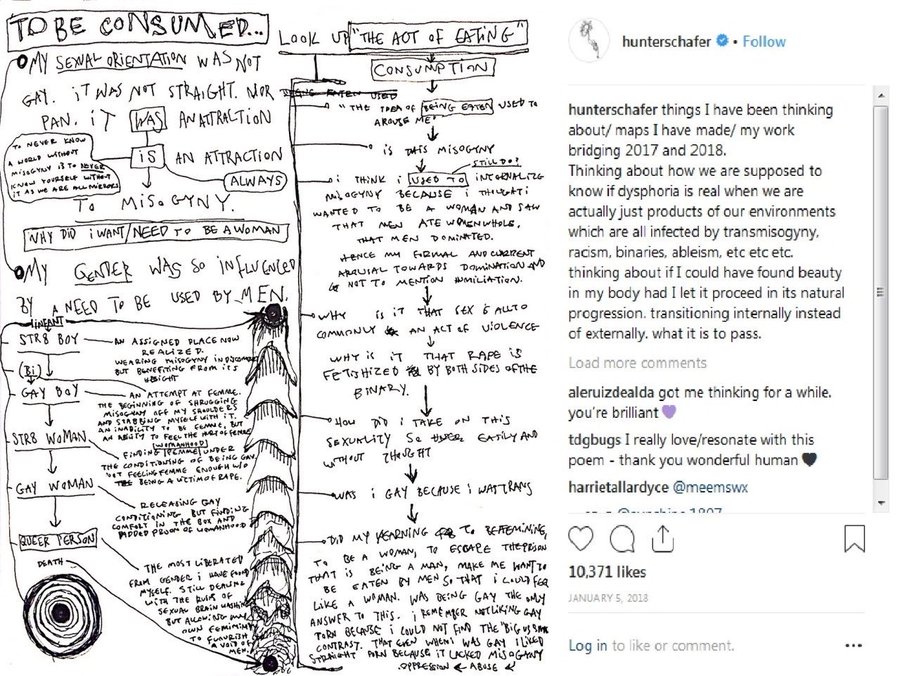 TO BE CONSUMED...
MY SEXUAL ORIENTATION WAS NOT
GAY. iT WAS NOT STRAIGHT. NOR
PAN. iT WAS AN ATTRACTION
TO NEVER KNOW
A WORLD WITHOUT
MISOGYNY IS TO NEVER
KNOW YOURSELF WITHOUT
IT AS WE ARE ALL MIRRORS
iS AN ATTRACTION
ALWAYS
TO MiSOGYNY.
WHY DID i WANT/NEED TO BE A WOMAN
MY GENDER WAS SO iNFLUENCED
BY A NEED TO BE USED BY MEN.
INFANT
STR8 BOY — AN ASSIGNED PLACE NOW
REALIZED.
WEARING MISOGYNY IN
BUT BENEFITTING FROM ITS
WEIGHT
(Bi)
GAY BOY — AN ATTEMPT AT FEMME.
THE BEGINNING OF SHRUGGING
MISOGYNY OFF MY SHOULDERS
AND STABBING MYSELF WITH IT.
AN INABILITY TO BE FEMME, BUT
AN ABILITY TO FEEL THE HURT OF FEMME
STR8 WOMAN — WOMANHOOD
FINDING FEMME UNDER
THE CONDITIONING OF BEING GAY
NOT FEELING FEMME ENOUGH W/O
THE BEING A VICTIM OF RAPE.
GAY WOMAN — RELEASING GAY
CONDITIONING BUT FINDING
COMFORT IN THE BOX AND
PADDED PRISON OF WOMANHOOD
QUEER PERSON — THE MOST LIBERATED
FROM GENDER i HAVE FOUND
MYSELF. STILL DEALING
WITH THE RUINS OF
SEXUAL BRAIN WASHING
BUT ALLOWING MY
OWN FEMININITY
TO FLOURISH
A VOID OF
MEN.
DEATH
LOOK UP "THE ACT OF EATING"
CONSUMPTION
"THE IDEA OF BEING EATEN USED TO
AROUSE ME"
iS THIS MISOGYNY
STILL DO?
i THINK i USED TO INTERNALIZE
MISOGYNY BECAUSE i THOUGHT i
WANTED TO BE A WOMAN AND SAW
THAT MEN ATE WOMEN WHOLE,
THAT MEN DOMINATED.
HENCE MY FORMAL AND CURRENT
AROUSAL TOWARDS DOMINATION AND
NOT TO MENTION HUMILIATION.
WHY IS iT THAT SEX IS ALSO
COMMONLY AN ACT OF VIOLENCE
WHY IS iT THAT RAPE IS
FETISHIZED BY BOTH SIDES OF THE
BINARY.
HOW DID i TAKE ON THIS
SEXUALITY SO EASILY AND
WITHOUT THOUGHT
WAS i GAY BECAUSE i WAS TRANS
DID MY YEARNING TO BE FEMININE,
TO BE A WOMAN, TO ESCAPE THE PRISON
THAT IS BEING A MAN, MAKE ME WANT TO
BE EATEN BY MEN SO THAT i COULD FEEL
LIKE A WOMAN. WAS BEING GAY THE ONLY
ANSWER TO THIS. i REMEMBER NOT LIKING GAY
PORN BECAUSE i COULD NOT FIND THE "BIG VS SMALL
CONTRAST. THAT EVEN WHEN i WAS GAY i LIKED
STRAIGHT PORN BECAUSE IT LACKED MISOGYNY
OPPRESSION ← ABUSE
hunterschafer • Follow
hunterschafer things I have been thinking
about/ maps I have made/ my work
bridging 2017 and 2018.
Thinking about how we are supposed to
know if dysphoria is real when we are
actually just products of our environments
which are all infected by transmisogyny,
racism, binaries, ableism, etc etc etc.
thinking about if I could have found beauty
in my body had I let it proceed in its natural
progression. transitioning internally instead
of externally. what it is to pass.
Load more comments
aleruizdealda got me thinking for a while.
you're brilliant 💜
tdgbugs I really love/resonate with this
poem - thank you wonderful human 🖤
harrietallardyce @meemswx
10,371 likes
JANUARY 5, 2018
Log in to like or comment.